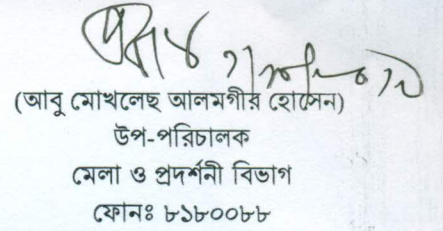 (আবু মোখলেছ আলমগীর হোসেন)
উপ-পরিচালক
মেলা ও প্রদর্শনী বিভাগ
ফোনঃ ৮১৮০০৮৮